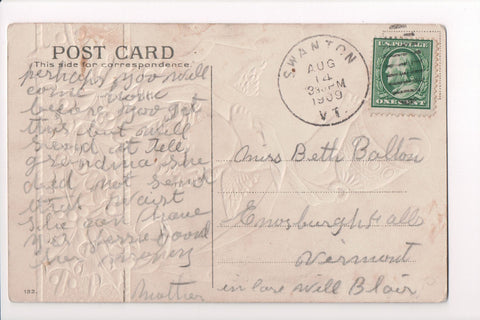 POST CARD
This side for correspondence.
perhaps you will
come home
before you get
this but will
send it Tell
grandma she
did not send
waist
she can have
good
mercy
Mother
133.
SWANTON
AUG
14
PM
1909
VT.
U.S. POSTAGE
ONE CENT
Miss Beth Bolton
Enosburgh Falls
Vermont
in care Will Blair